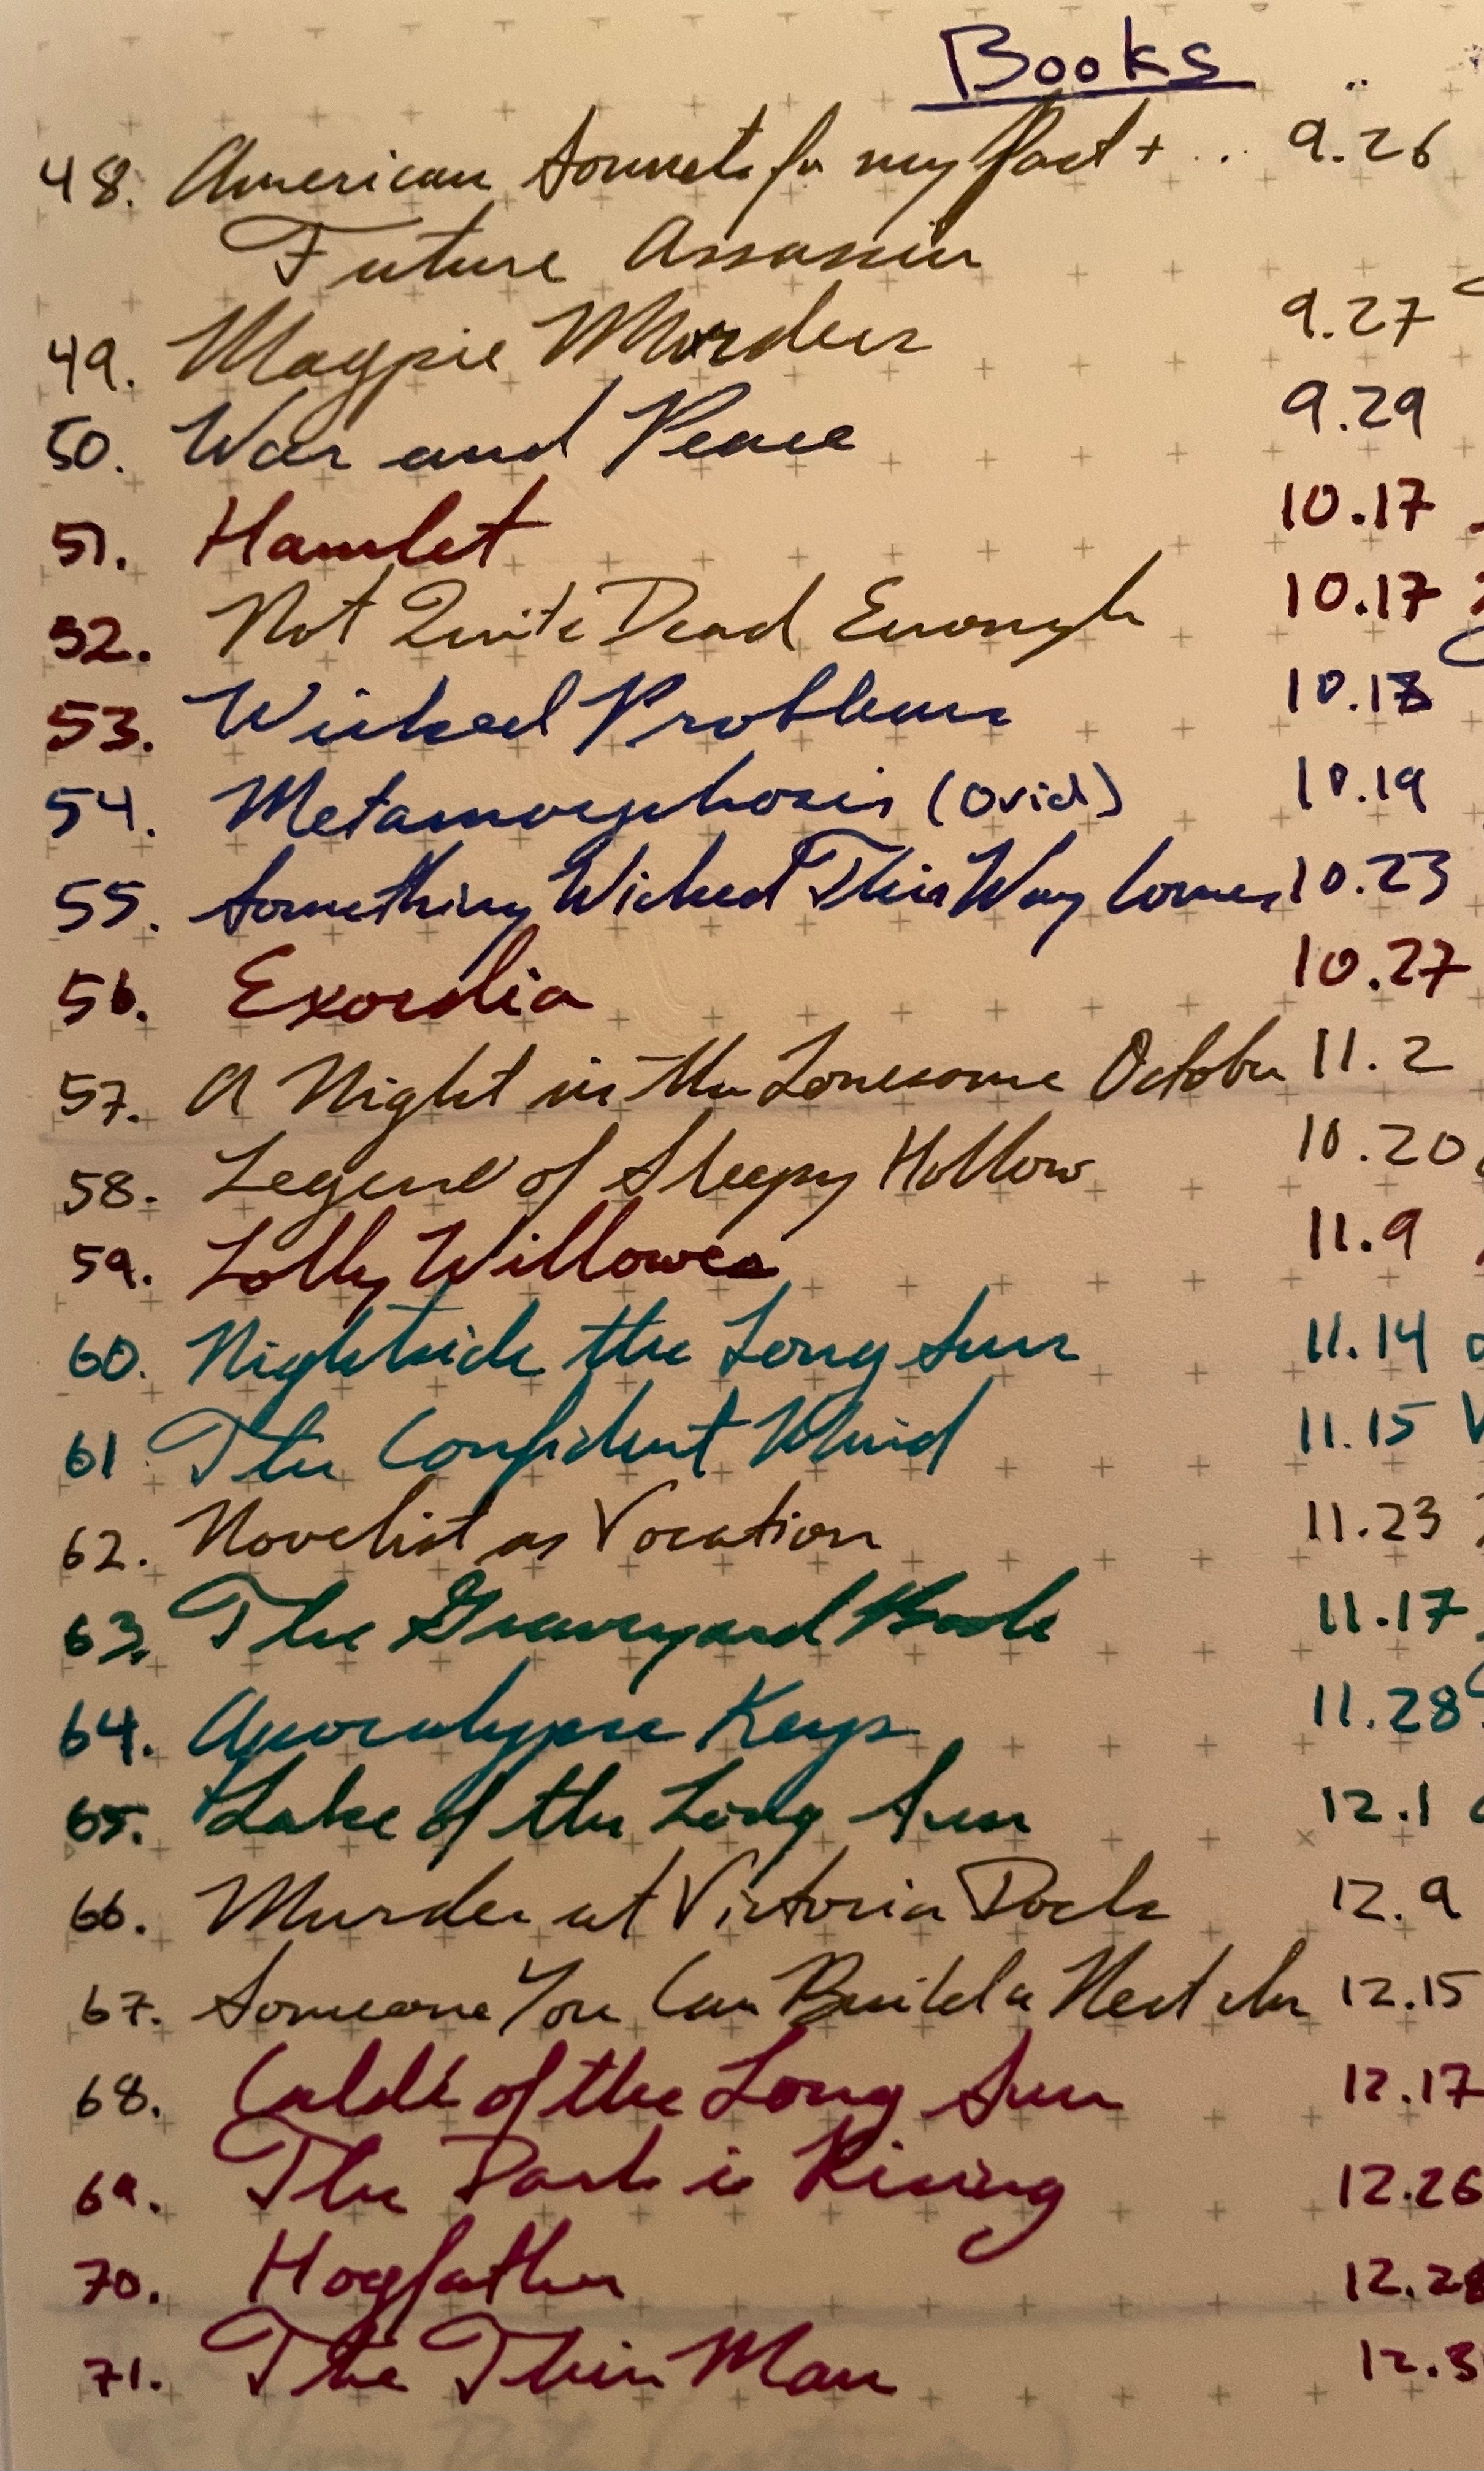 Books
48. American Sonnets for my Past + .. 9.26
Future Assassin
49. Magpie Murders 9.27
50. War and Peace 9.29
51. Hamlet 10.17
52. Not Quite Dead Enough 10.17
53. Wicked Problems 10.18
54. Metamorphosis (Ovid) 10.19
55. Something Wicked This Way Comes 10.23
56. Exordia 10.27
57. A Night in the Lonesome October 11.2
58. Legend of Sleepy Hollow 10.20
59. Lolly Willowes 11.9
60. Nightside the Long Sun 11.14
61. The Confident Mind 11.15
62. Novelist as Vocation 11.23
63. The Graveyard Book 11.17
64. Apocalypse Keys 11.28
65. Lake of the Long Sun 12.1
66. Murder at Victoria Dock 12.9
67. Someone You Can Build a Nest In 12.15
68. Caldé of the Long Sun 12.17
69. The Dark is Rising 12.26
70. Hogfather 12.28
71. The Thin Man 12.3